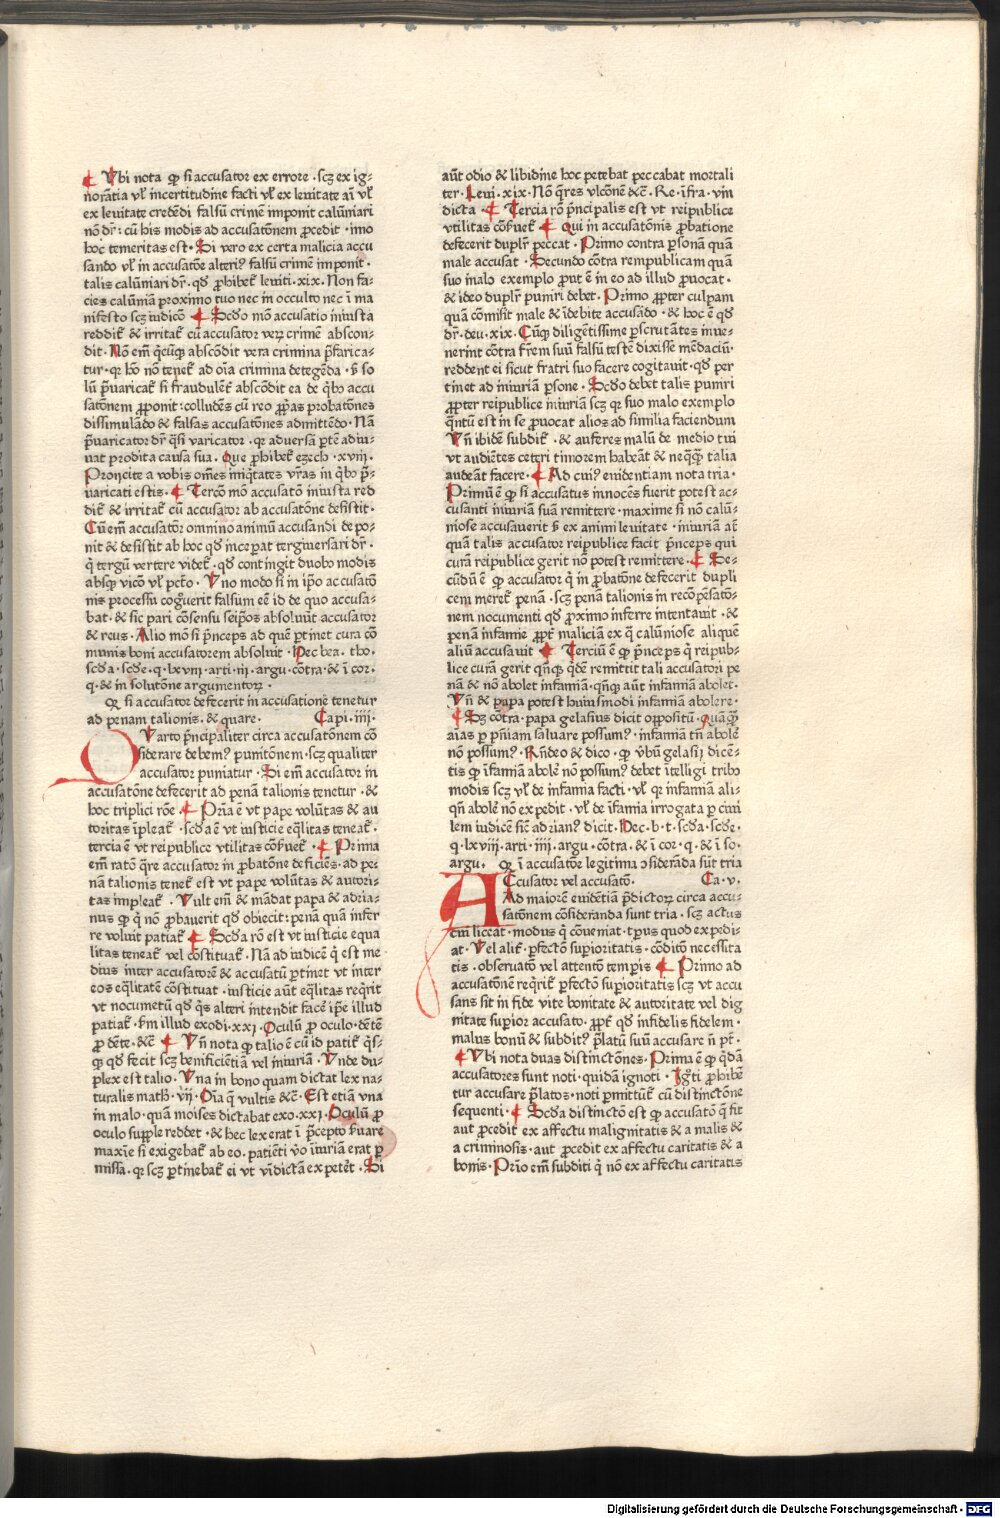 ¶ Ubi nota ꝙ si accusator ex errore · scꝫ ex ig⸗
norātia vl̓ incertitudine facti vl̓ ex leuitate aī vl̓
ex leuitate credēdi falsū crimē imponit calūniari
nō dr̄ : cū his modis ad accusatōnem ꝓcedit · imo
hoc temeritas est · Si vero ex certa malicia accu
sando vl̓ in accusatōe alteriꝰ falsū crimē imponit ·
talis calūniari dr̄ · qd̄ ꝓhibet̄ leuiti · xix · Non fa⸗
cies calūniā proximo tuo nec in occulto nec ī ma
nifesto scꝫ iudicō ¶ Scd̄o mō accusatio iniusta
reddit̄ & irritat̄ cū accusator veꝝ crimē abscon⸗
dit · Nō em̄ q̄cūqꝫ abscōdit vera crimina p̄farica⸗
tur · qꝛ hō nō tenet̄ ad oīa crimina detegēda · ſꝫ so
lū p̄uaricat̄ si fraudulēt̄ abscōdit ea de qͥbo accu
satōnem ꝓponit : colludēs cū reo ꝓp̄as probatōnes
dissimulādo & falsas accusatōnes admittēdo · Nā
p̄uaricator dr̄ q̄si varicator · qꝛ aduersā ꝑtē adiu⸗
uat prodita causa sua · Que ꝓhibet̄ ezech · xviij ·
Proijcite a vobis om̄es iniq̄tates vr̄as in qͥbo p̄⸗
uaricati estis · ¶ Tercō mō accusatō iniusta red
dit̄ & irritat̄ cū accusator ab accusatōne desistit ·
Cū em̄ accusator omnino animū accusandi depo⸗
nit & desistit ab hoc qd̄ inceperat tergiuersari dr̄ ·
q̄ tergū vertere videt̄ · qd̄ contingit duobo modis
absqꝫ vicio vl̓ pctō · Uno modo si in ip̄o accusatō
nis processu cogͦuerit falsum eē id de quo accusa⸗
bat · & sic pari cōsensu seip̄os absoluūt accusator
& reus · Alio mō si p̄nceps ad quē ꝑtinet cura cō
munis boni accusatorem absoluit · Hec bea · tho ·
scd̄a · scd̄e · q · lxviij · arti · iij · argu · cōtra · & ī cor ·
q · & in solutōne argumentoꝝ ·
Qꝛ si accusator defecerit in accusatione tenetur
ad penam talionis · & quare · Capi · iiij ·
Quarto p̄ncipaliter circa accusatōnem cō
siderare debemꝰ punitōnem · scꝫ qualiter
accusator puniatur · Si em̄ accusator in
accusatōne defecerit ad penā talionis tenetur · &
hoc triplici rōe · ¶ Pria ē vt pape volūtas & au
toritas īpleat̄ · scd̄a ē vt iusticie eq̄litas teneat̄ ·
tercia ē vt reipublice vtilitas cōſuet̄ · ¶ Prima
em̄ ratō q̄re accusator in ꝓbatōne deficiēs · ad pe⸗
nā talionis tenet̄ est vt pape volūtas & autori⸗
tas impleat̄ · Uult em̄ & mādat papa & adria⸗
nus ꝙ q̄ nō ꝓbauerit qd̄ obiecit : penā quā infer
re voluit patiat̄ ¶ Scd̄a rō est vt iusticie equa
litas teneat̄ vel cōstituat̄ · Nā ad iudicē q̄ est me
dius inter accusatorē & accusatū ꝑtinet vt inter
eos eq̄litatē cōstituat · iusticie aūt eq̄litas req̄rit
vt nocumētū qd̄ q̄s alteri intendit facē ip̄e illud
patiat̄ · ſm illud exodi · xxi · Oculū ꝓ oculo · dētē
ꝓ dēte · &c̄ ¶ Un̄ nota ꝙ talio ē cū id patit̄ q̄s⸗
qꝫ qd̄ fecit scꝫ benificiētiā vel iniuriā · Unde du⸗
plex est talio · Una in bono quam dictat lex na⸗
turalis math · vij · Oīa q̄ vultis &c̄ · Est etiā vna
in malo · quā moises dictabat exo · xxi · Oculū ꝓ
oculo supple reddet · & hec lex erat ī p̄cepto ſuare
maxīe si exigebat̄ ab eo · patiēti v̄o īiuriā erat ꝑ
missa · qꝛ scꝫ ꝑtinebat̄ ei vt vīdictā expetēt · Si
aūt odio & libidine hoc petebat peccabat mortali
ter · Leui · xix · Nō q̄res vlcōnē &c̄ · Re · īfra · vin
dicta · ¶ Tercia rō p̄ncipalis est vt reipublice
vtilitas cōſuet̄ ¶ Qui in accusatōnis ꝓbatione
defecerit duplr̄ peccat · Primo contra ꝑsonā quā
male accusat · Secundo cōtra rempublicam quā
suo malo exemplo ꝓut ē in eo ad illud ꝓuocat ·
& ideo duplr̄ puniri debet · Primo ꝓpter culpam
quā cōmisit male & īdebite accusādo · & hoc ē qd̄
dr̄ · deu · xix · Cūqꝫ diligētissime ꝑscrutātes inue⸗
nerint cōtra fr̄em suū falsū testē dixisse mēdaciū ·
reddent ei sicut fratri suo facere cogitauit · qd̄ per
tinet ad iniuriā ꝑsone · Scd̄o debet talis puniri
ꝓpter reipublice iniuriā scꝫ qꝛ suo malo exemplo
q̄ntū est in se ꝓuocat alios ad similia faciendum
Un̄ ibidē subdit̄ · & auferes malū de medio tui
vt audiētes ceteri timorem habeāt & neq̄q̄ talia
audeāt facere · ¶ Ad cuiꝰ euidentiam nota tria ·
Primū ē ꝙ si accusatus innocēs fuerit potest ac⸗
cusanti iniuriā suā remittere · maxime si nō calū⸗
niose accusauerit ſꝫ ex animi leuitate · iniuriā at̄
quā talis accusator reipublice facit p̄nceps qui
curā reipublice gerit nō potest remittere · ¶ Se⸗
cūdū ē ꝙ accusator q̄ in ꝓbatōne defecerit dupli
cem meret̄ penā · scꝫ penā talionis in recōpēsatō⸗
nem nocumenti qd̄ ꝓximo inferre intentauit · &
penā infamie ꝓpt̄ maliciā ex q̄ calūniose aliquē
aliū accusauit ¶ Terciū ē ꝙ p̄nceps q̄ reipub⸗
lice curā gerit qn̄qꝫ q̄dē remittit tali accusatori pe
nā & nō abolet infamiā · qn̄qꝫ aūt infamiā abolet ·
Un̄ & papa potest huiusmodi infamiā abolere ·
¶ Sꝫ cōtra · papa gelasius dicit oppositū · Quāqꝫ
aīas ꝑ pn̄iam saluare possumꝰ · infamiā tn̄ abolē
nō possumꝰ · Rn̄deo & dico · ꝙ v̄bū gelasij dicē⸗
tis ꝙ īfamiā abolē nō possumꝰ debet ītelligi tribo
modis scꝫ vl̓ de infamia facti · vl̓ qꝛ infamiā ali⸗
qn̄ abolē nō expedit · vl̓ de īfamia irrogata ꝑ ciui
lem iudicē sic̄ adrianꝰ dicit · Hec · b · t · scd̄a · scd̄e ·
q · lxviij · arti · iiij · argu · cōtra · & ī cor · q · & ī so ·
argu · Qꝛ ī accusatōe legitima ↄsiderāda sūt tria
Accusator vel accusatō · Ca · v ·
Ad maiorē euidētiā p̄dictoꝝ circa accu⸗
satōnem cōsideranda sunt tria · scꝫ actus
cui liceat · modus q̄ cōueniat · tp̄us quod expedi⸗
at · Uel alit̄ · ꝑfectō supioritatis · cōditō necessita
tis · obseruatō vel attentō temp̄is ¶ Primo ad
accusatōnē req̄rit̄ ꝑfectō supioritatis scꝫ vt accu
sans sit in fide vite bonitate & autoritate vel dig
nitate supior accusato · ꝓpt̄ qd̄ infidelis fidelem ·
malus bonū & subditꝰ p̄latū suū accusare n̄ pt̄ ·
¶ Ubi nota duas distinctōnes · Prima ē ꝙ q̄dā
accusatores sunt noti · quidā ignoti · Igͦti ꝓhibē
tur accusare p̄latos · noti ꝑmittūt̄ cū distinctōne
sequenti · ¶ Scd̄a distinctō est ꝙ accusatō q̄ fit
aut ꝓcedit ex affectu malignitatis & a malis &
a criminosis · aut ꝓcedit ex affectu caritatis & a
bonis · Prīo em̄ subditi q̄ nō ex affectu caritatis
Digitalisierung gefördert durch die Deutsche Forschungsgemeinschaft · DFG